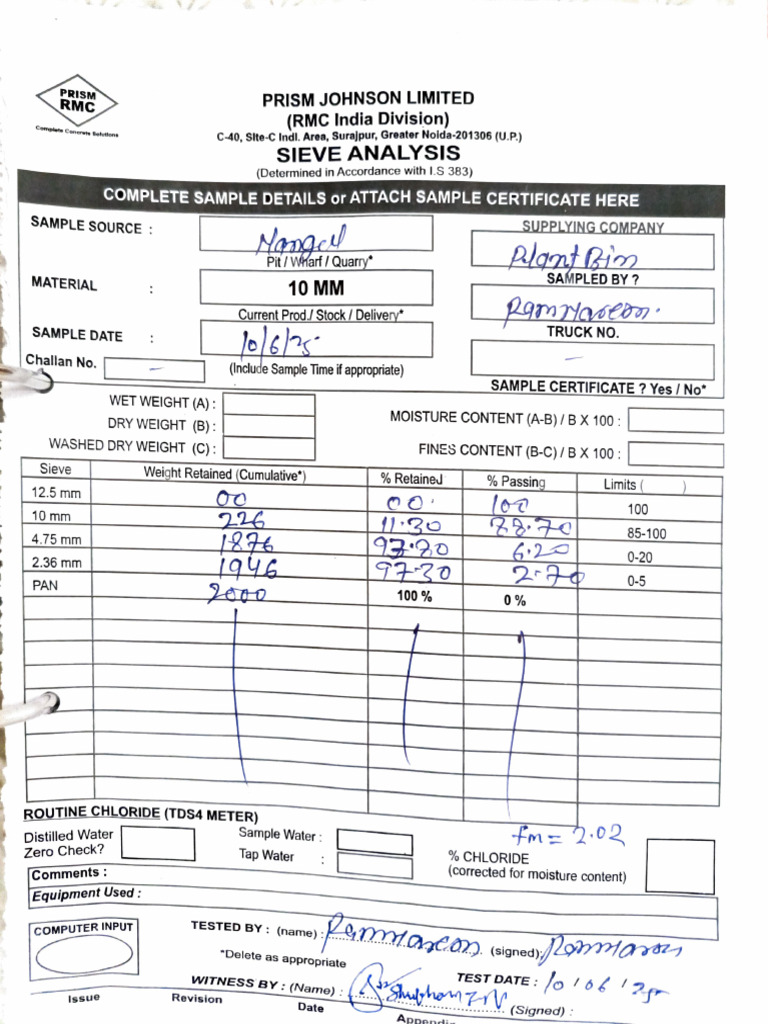 PRISM
RMC
Complete Concrete Solutions
PRISM JOHNSON LIMITED
(RMC India Division)
C-40, Site-C Indl. Area, Surajpur, Greater Noida-201306 (U.P.)
SIEVE ANALYSIS
(Determined in Accordance with I.S 383)
COMPLETE SAMPLE DETAILS or ATTACH SAMPLE CERTIFICATE HERE
SAMPLE SOURCE :
Pit / Wharf / Quarry*
SUPPLYING COMPANY
Plant Bin
MATERIAL :
10 MM
Current Prod./ Stock / Delivery*
SAMPLED BY ?
SAMPLE DATE :
10/6/25
(Include Sample Time if appropriate)
TRUCK NO.
-
Challan No. -
SAMPLE CERTIFICATE ? Yes / No*
WET WEIGHT (A) :
DRY WEIGHT (B) :
WASHED DRY WEIGHT (C) :
MOISTURE CONTENT (A-B) / B X 100 :
FINES CONTENT (B-C) / B X 100 :
Sieve Weight Retained (Cumulative*) % Retained % Passing Limits ( )
12.5 mm 00 00. 100 100
10 mm 226 11.30 88.70 85-100
4.75 mm 1876 93.80 6.20 0-20
2.36 mm 1946 97.30 2.70 0-5
PAN 2000 100 % 0 %
fm = 2.02
ROUTINE CHLORIDE (TDS4 METER)
Distilled Water
Zero Check?
Sample Water :
Tap Water :
% CHLORIDE
(corrected for moisture content)
Comments :
Equipment Used :
COMPUTER INPUT
TESTED BY : (name) : (signed);
*Delete as appropriate
TEST DATE : 10/06/2025
WITNESS BY : (Name) : (Signed) :
Issue Revision Date Appendix